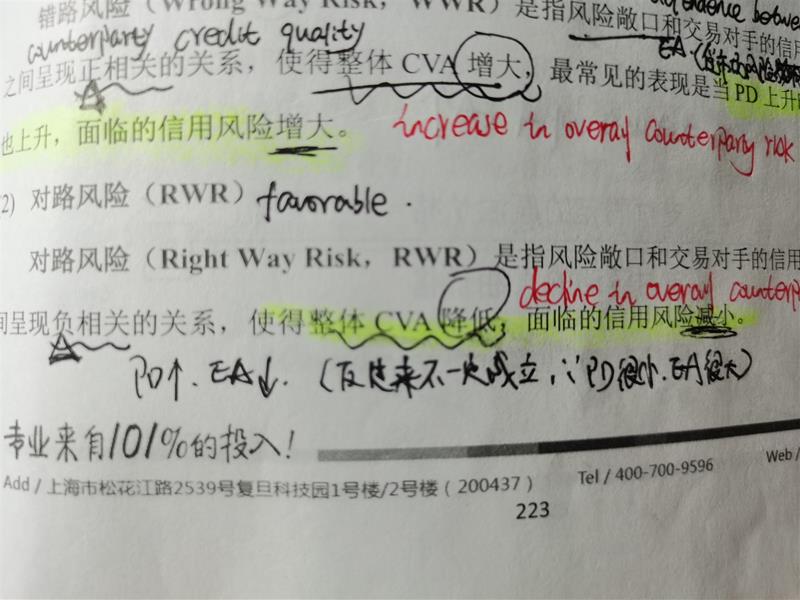 错路风险（Wrong Way Risk，WWR）是指风险敞口和交易对手的信用
between
counterparty credit quality
之间呈现正相关的关系，使得整体 CVA 增大，最常见的表现是当 PD 上升
也上升，面临的信用风险增大。 increase in overall counterparty risk
2) 对路风险（RWR） favorable.
对路风险（Right Way Risk，RWR）是指风险敞口和交易对手的信用
decline in overall counterp
间呈现负相关的关系，使得整体 CVA 降低，面临的信用风险减小。
PD↑. EA↓. (反过来不一定成立，∵PD很小.EA很大)
专业来自101%的投入！
Add / 上海市松花江路2539号复旦科技园1号楼/2号楼（200437） Tel / 400-700-9596 Web /
223